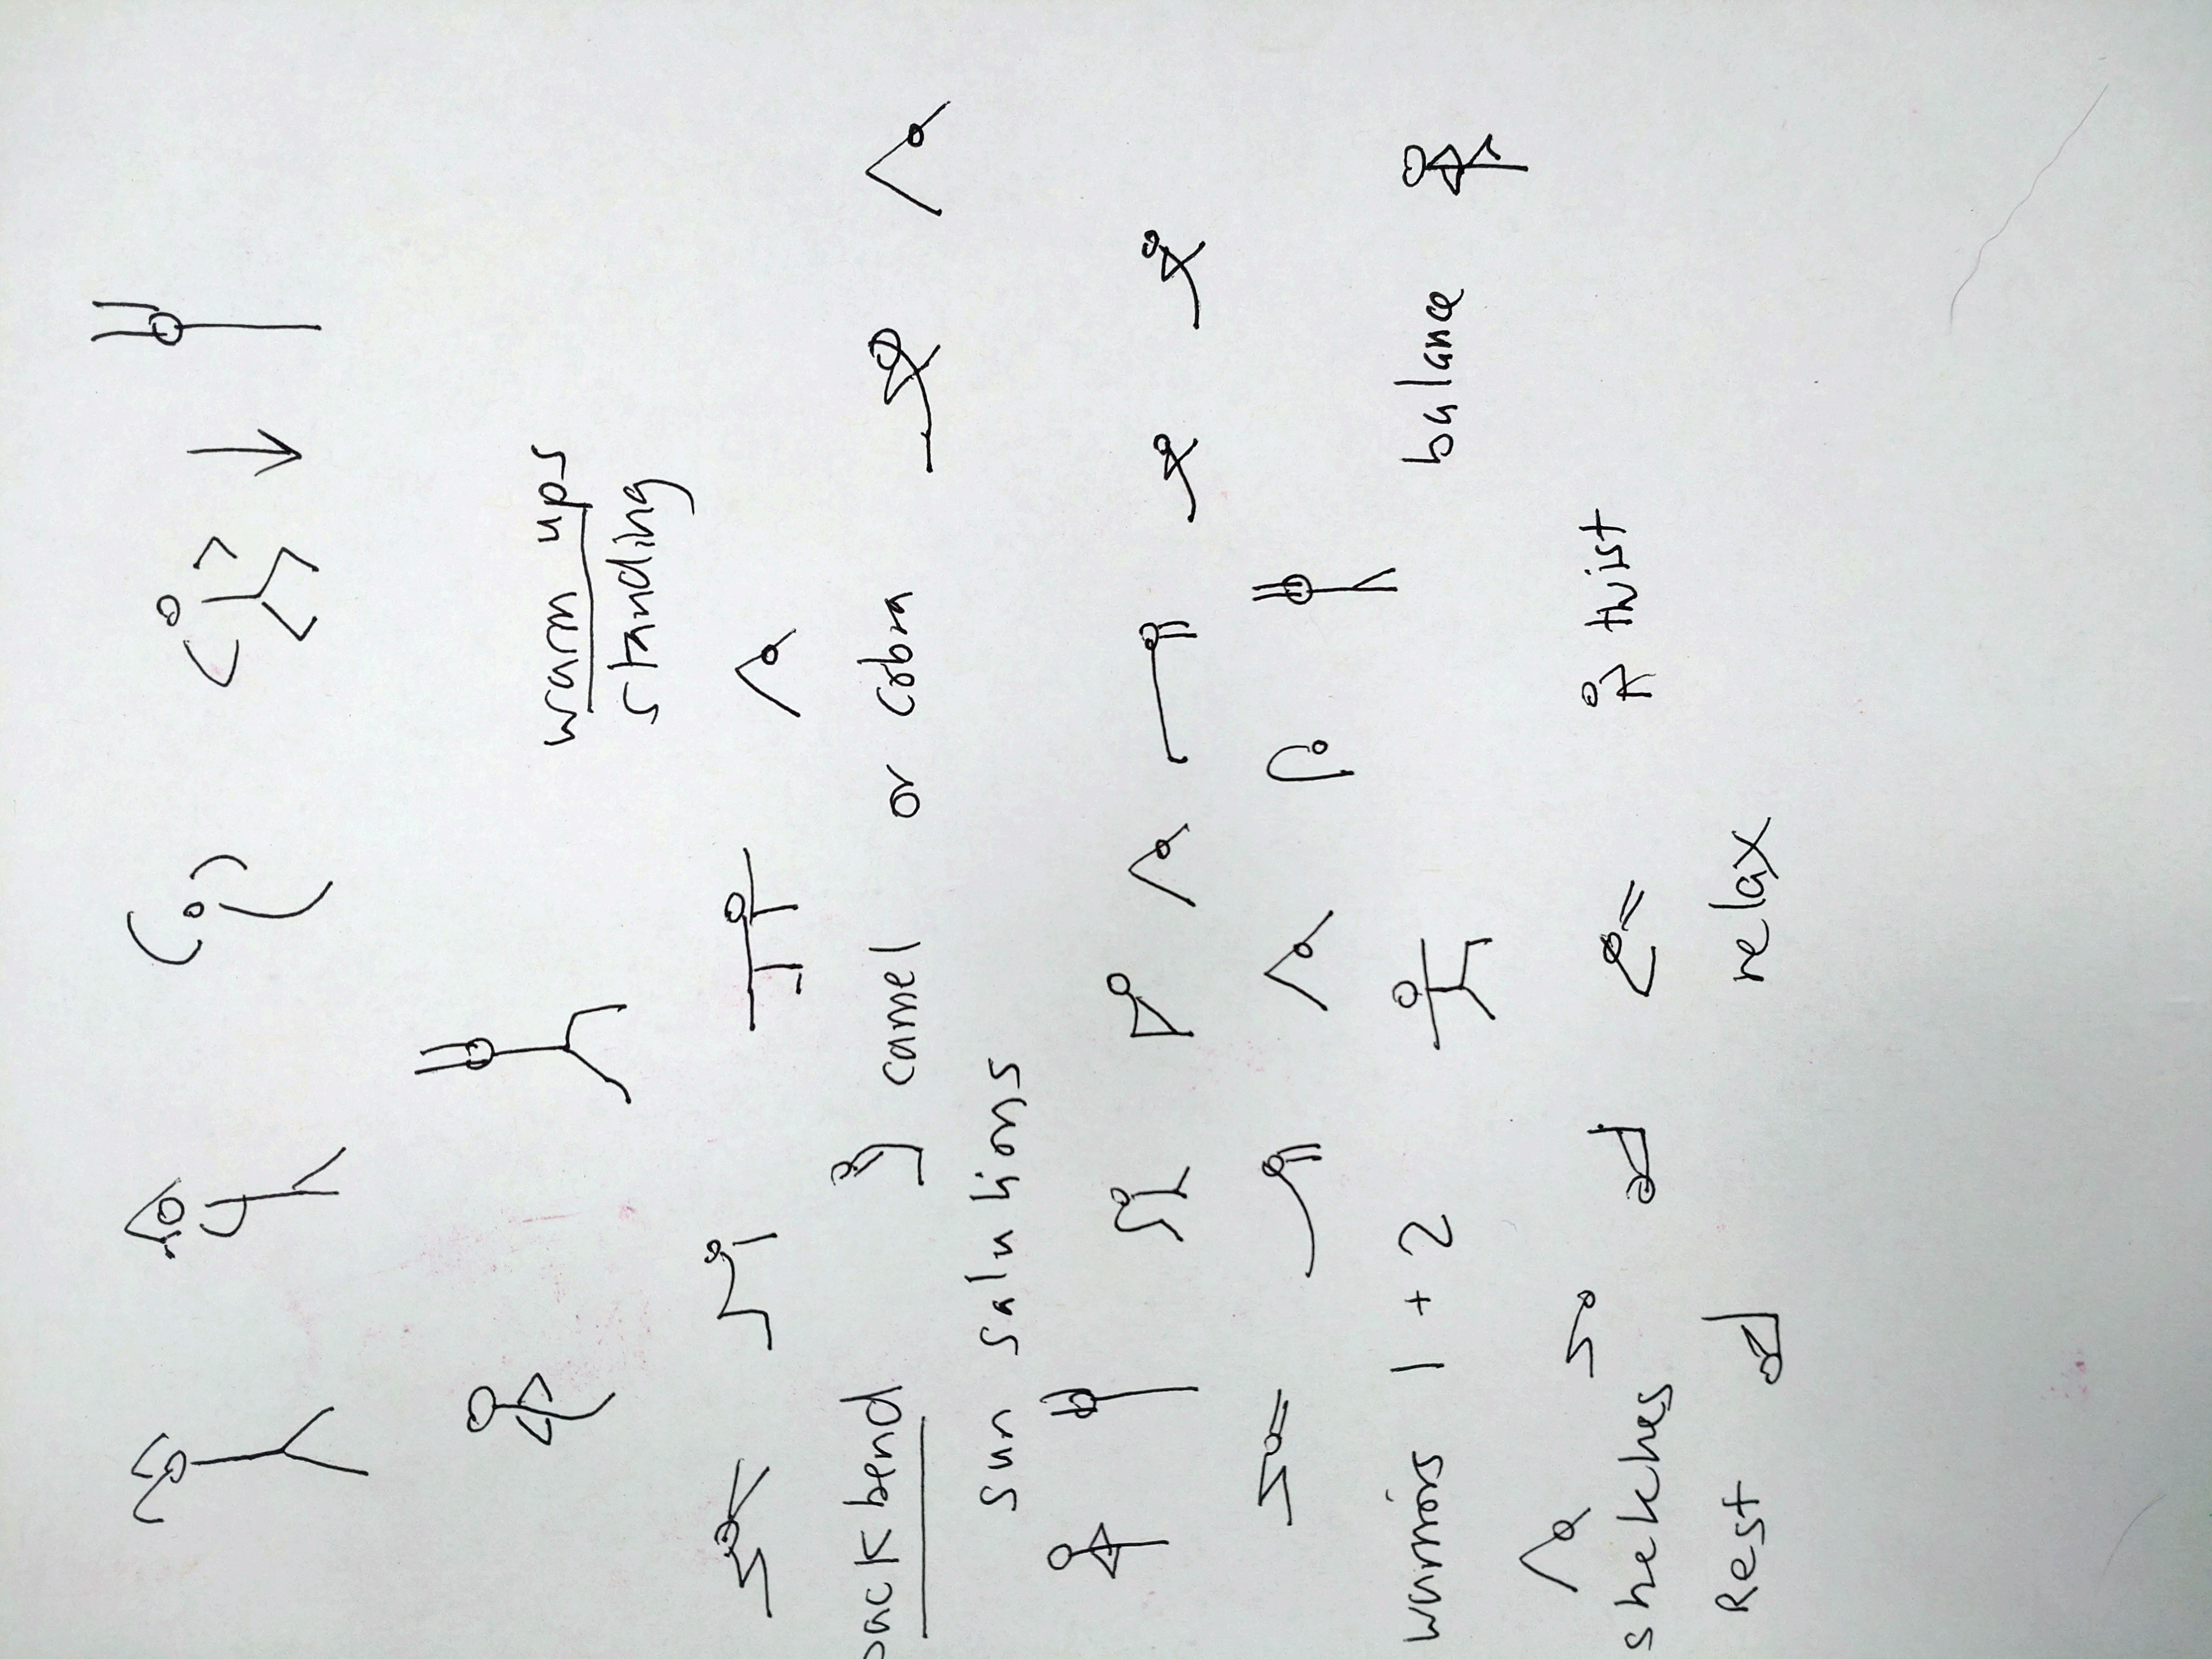 warm ups
standing
backbend camel or cobra
sun salutions
warriors 1 + 2 balance
stretches twist
Rest relax